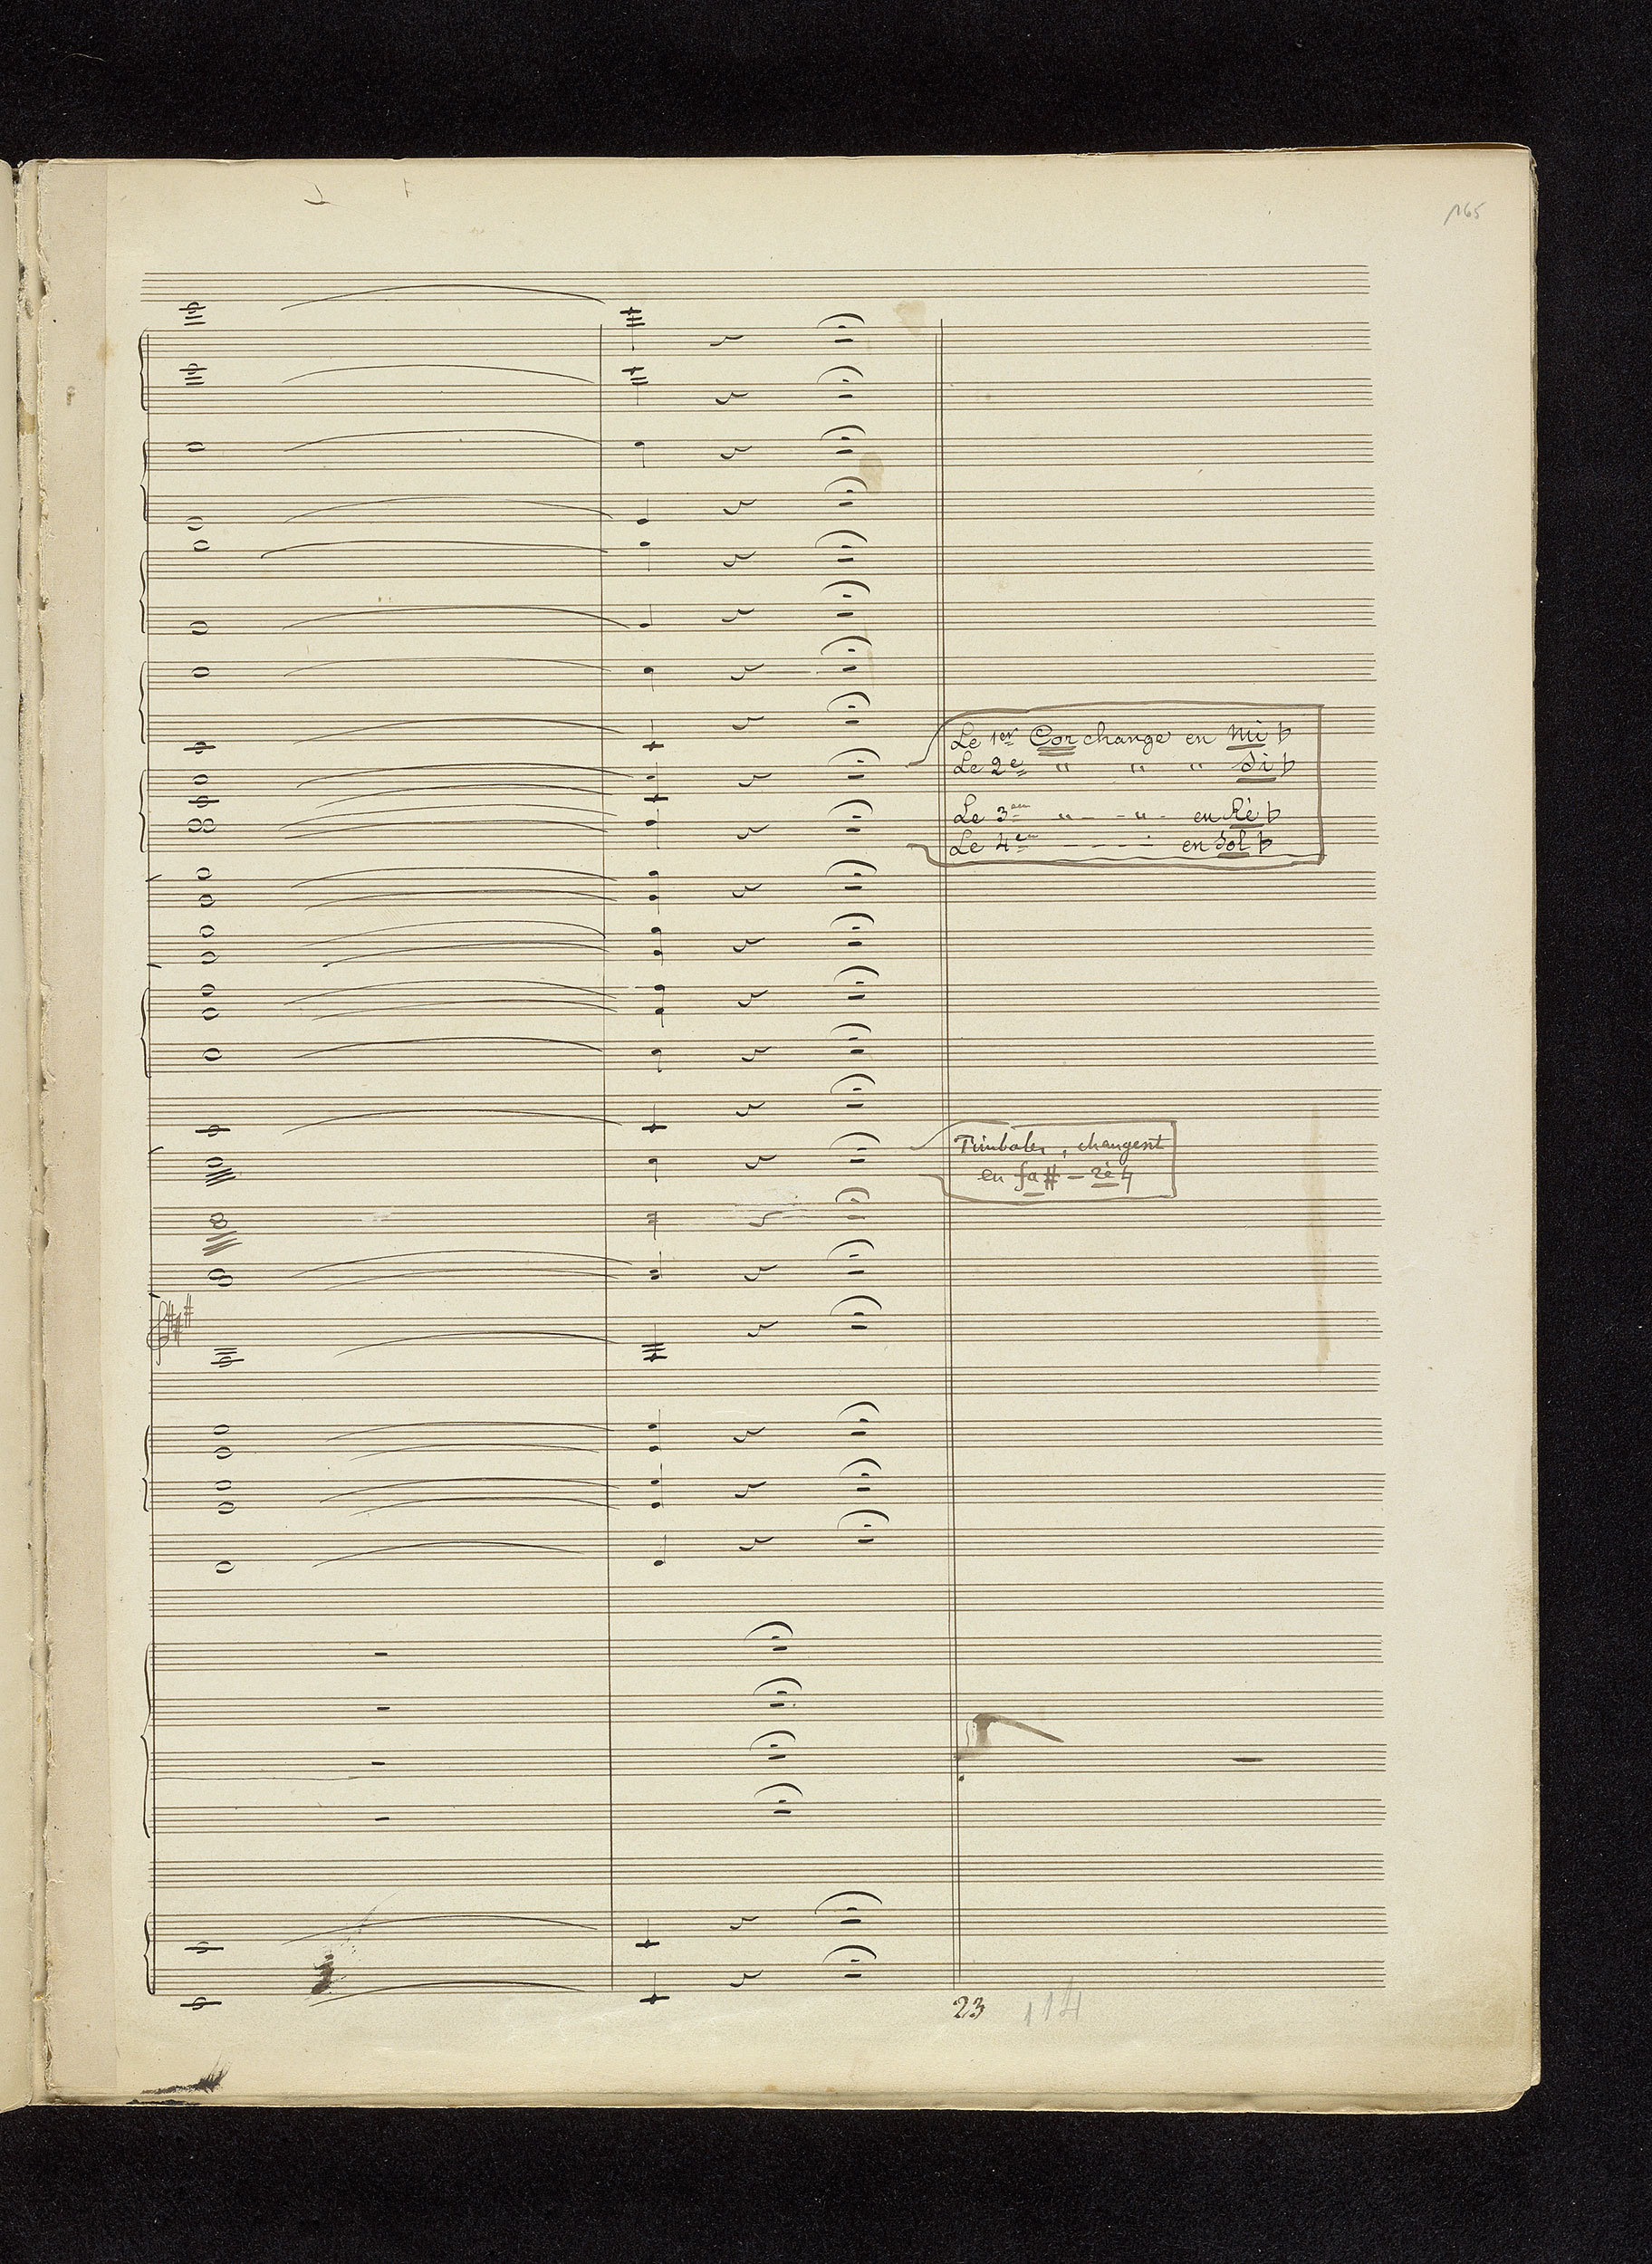 165
Le 1er Cor change en Mi ♭
Le 2e " " " Si ♭
Le 3em " - - " - en Ré ♭
Le 4em - - - - - en Sol ♭
Timbales, changent
en fa # - ré ♮
23 114